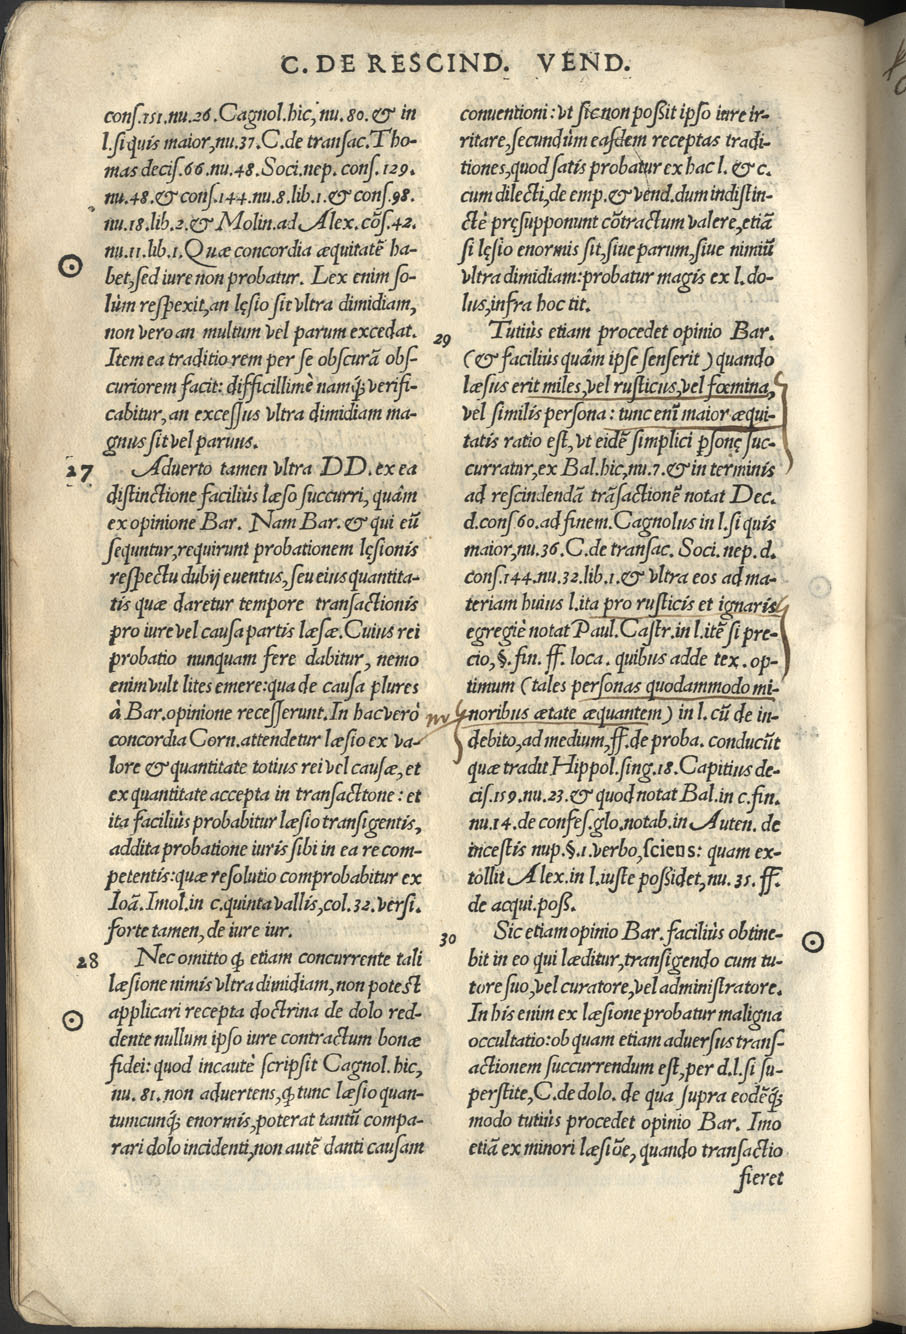 C. DE RESCIND. VEND.
cons.151.nu.26. Cagnol.hic, nu. 80. & in
l. si quis maior, nu.37. C. de transac. Tho-
mas decis.66.nu.48. Soci.nep. cons. 129.
nu.48.& cons.144.nu.8.lib.1.& cons.98.
nu.18.lib.2.& Molin.ad Alex. cõs.42.
nu.11.lib.1. Quæ concordia æquitatẽ ha-
bet, sed iure non probatur. Lex enim so-
lùm respexit, an lęsio sit vltra dimidiam,
non vero an multum vel parum excedat.
Item ea traditio rem per se obscurã obs-
curiorem facit: difficillimè namq́; verifi-
cabitur, an excessus vltra dimidiam ma-
gnus sit vel paruus.
27 Aduerto tamen vltra DD. ex ea
distinctione faciliùs læso succurri, quàm
ex opinione Bar. Nam Bar. & qui eũ
sequntur, requirunt probationem lęsionis
respectu dubij euentus, seu eius quantita-
tis quæ daretur tempore transactionis
pro iure vel causa partis læsæ. Cuius rei
probatio nunquam fere dabitur, nemo
enim vult lites emere: qua de causa plures
à Bar. opinione recesserunt. In hac verò
concordia Corn. attendetur læsio ex va-
lore & quantitate totius rei vel causæ, et
ex quantitate accepta in transacttone: et
ita faciliùs probabitur læsio transigentis,
addita probatione iuris sibi in ea re com-
petentis: quæ resolutio comprobabitur ex
Ioã. Imol. in c. quinta vallis, col. 32. versi.
forte tamen, de iure iur.
28 Nec omitto ꝙ etiam concurrente tali
læsione nimis vltra dimidiam, non potest
applicari recepta doctrina de dolo red-
dente nullum ipso iure contractum bonæ
fidei: quod incautè scripsit Cagnol. hic,
nu. 81. non aduertens, ꝙ tunc læsio quan-
tumcunq́; enormis, poterat tantũ compa-
rari dolo incidenti, non autẽ danti causam
conuentioni: vt sic non poßit ipso iure ir-
ritare, secundùm easdem receptas tradi-
tiones, quod satis probatur ex hac l. & c.
cum dilecti, de emp. & vend. dum indistin-
ctè pręsupponunt cõtractum valere, etiã
si lęsio enormis sit, siue parum, siue nimiũ
vltra dimidiam: probatur magis ex l. do-
lus, infra hoc tit.
29 Tutiùs etiam procedet opinio Bar.
(& faciliùs quàm ipse senserit) quando
læsus erit miles, vel rusticus, vel fœmina,
vel similis persona: tunc enĩ maior æqui-
tatis ratio est, vt eidẽ simplici psonę suc-
curratur, ex Bal. hic, nu.7. & in terminis
ad rescindendã trãsactionẽ notat Dec.
d. cons 60. ad finem. Cagnolus in l. si quis
maior, nu.36. C. de transac. Soci. nep. d.
cons.144.nu.32.lib.1.& vltra eos ad ma-
teriam huius l. ita pro rusticis et ignaris
egregiè notat Paul. Castr. in l. itẽ si pre-
cio, §. fin. ff. loca. quibus adde tex. op-
timum (tales personas quodammodo mi-
noribus ætate æquantem) in l. cũ de in-
debito, ad medium, ff. de proba. conducũt
quæ tradit Hippol. sing. 18. Capitius de-
cis.159.nu.23.& quod notat Bal. in c. fin.
nu.14. de confes. glo. notab. in Auten. de
incestis nup. §.1. verbo, sciens: quam ex-
tollit Alex. in l. iuste poßidet, nu. 35. ff.
de acqui. poß.
30 Sic etiam opinio Bar. faciliùs obtine-
bit in eo qui læditur, transigendo cum tu-
tore suo, vel curatore, vel administratore.
In his enim ex læsione probatur maligna
occultatio: ob quam etiam aduersus trans-
actionem succurrendum est, per d. l. si su-
perstite, C. de dolo. de qua supra eodẽq́;
modo tutiùs procedet opinio Bar. Imo
etiã ex minori læsiõe, quando transactio
fieret